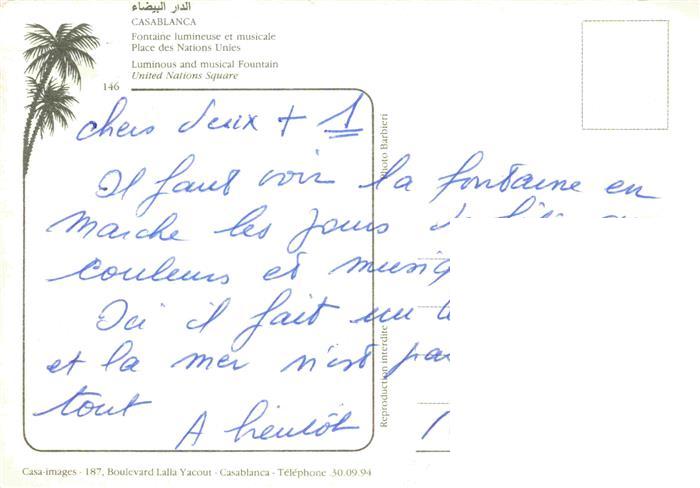 الدار البيضاء
CASABLANCA
Fontaine lumineuse et musicale
Place des Nations Unies
Luminous and musical Fountain
United Nations Square
146
chers deux + 1
Il faut voir la fontaine en
marche les jours
couleurs et musiq
Ici il fait un
et la mer n'est pa
tout
A bientôt
Photo Barbieri
Reproduction interdite
Casa-images - 187, Boulevard Lalla Yacout - Casablanca - Téléphone 30.09.94